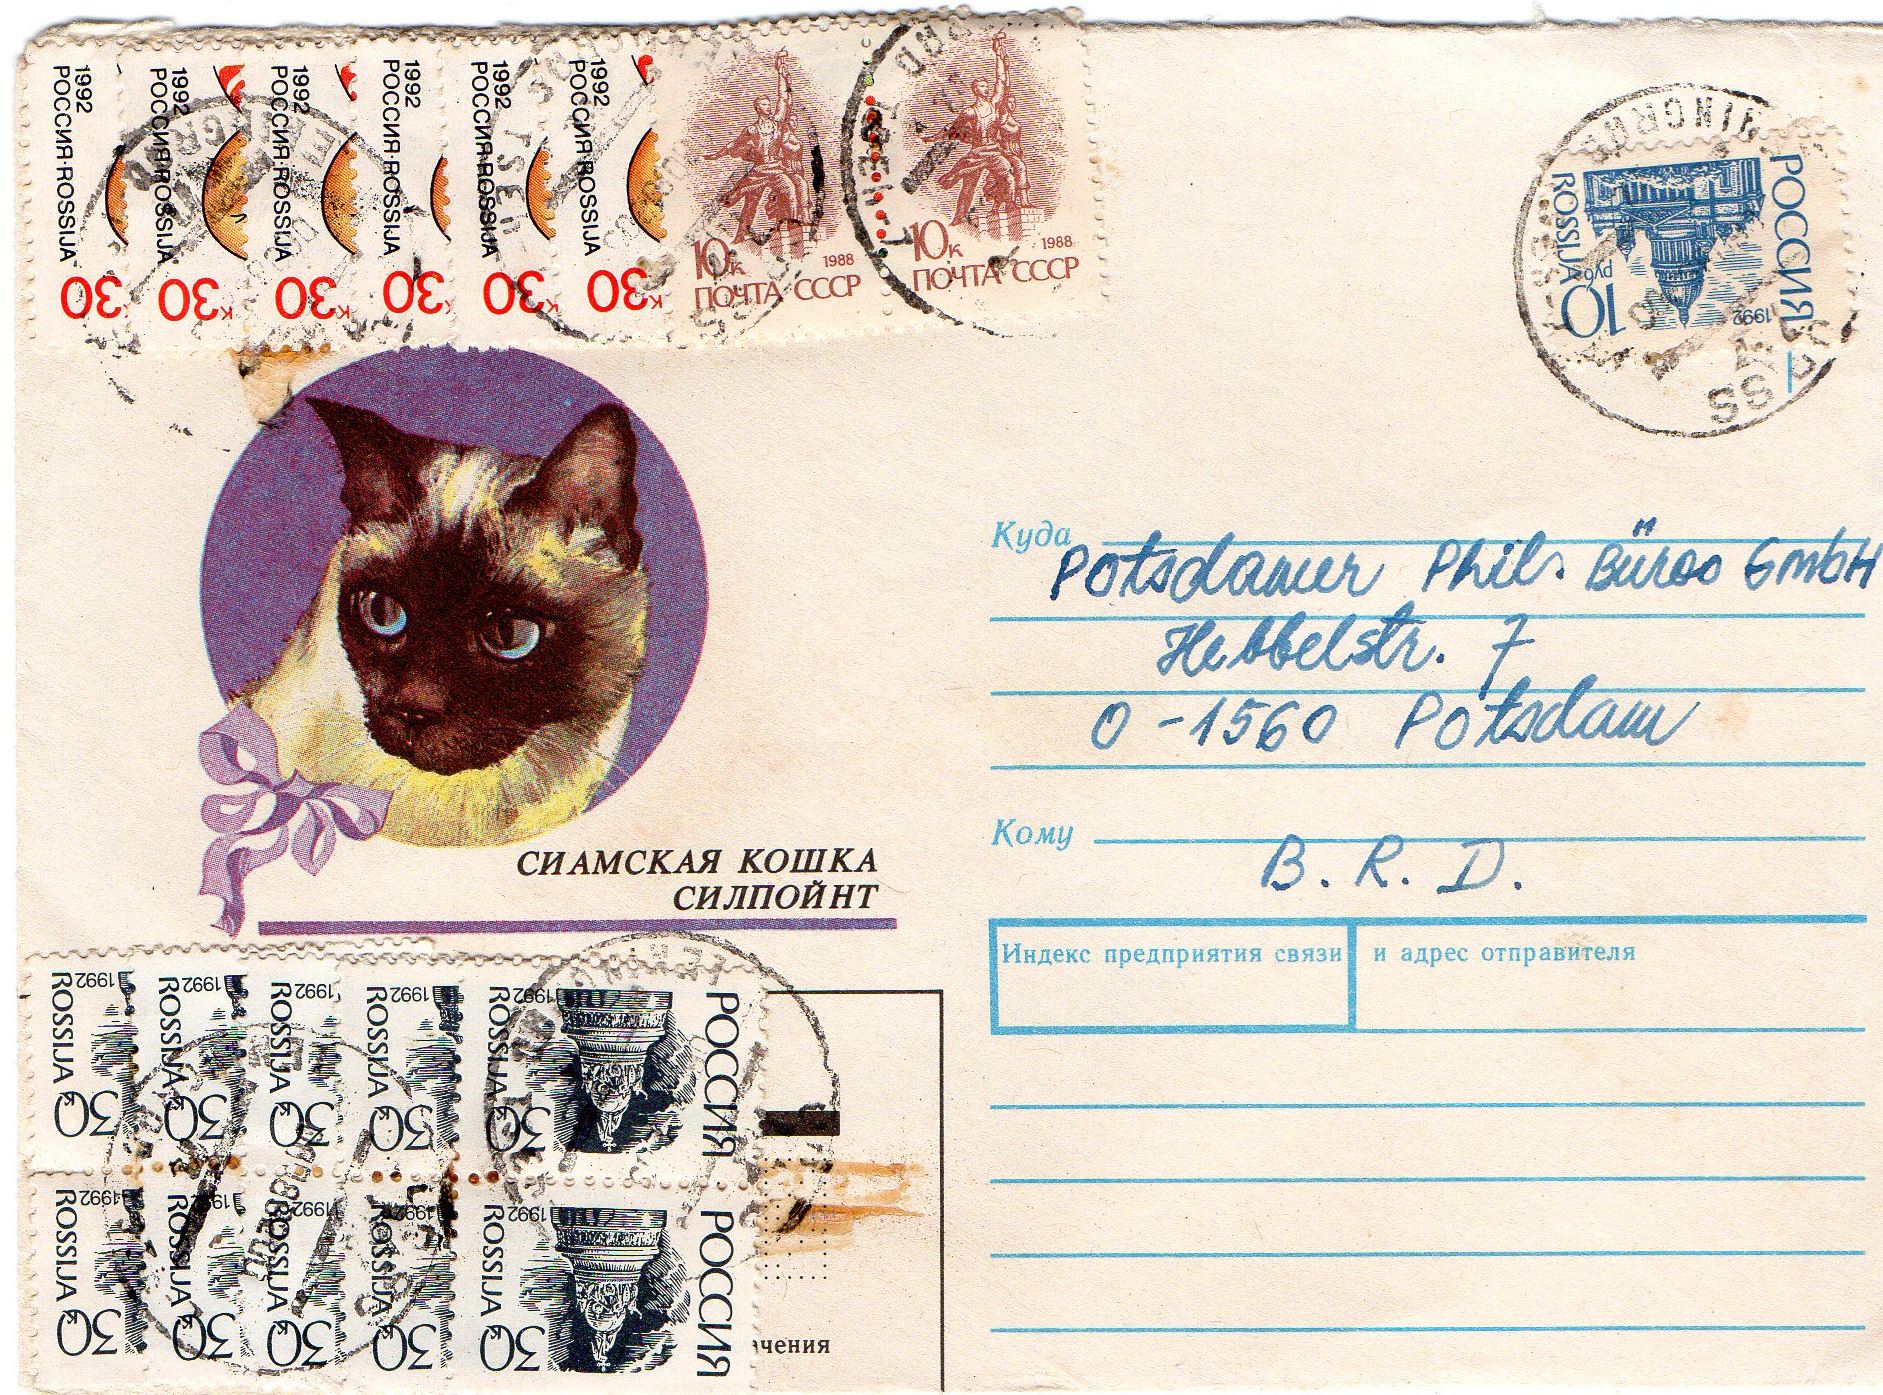 1992
РОССИЯ·ROSSIJA
30
1992
РОССИЯ·ROSSIJA
30к
1992
РОССИЯ·ROSSIJA
30к
1992
РОССИЯ·ROSSIJA
30к
1992
РОССИЯ·ROSSIJA
30к
1992
РОССИЯ·ROSSIJA
30к
10к
1988
ПОЧТА СССР
10к
1988
ПОЧТА СССР
РОССИЯ
1992
10
рубл
ROSSIJA
СИАМСКАЯ КОШКА
СИЛПОЙНТ
Куда
Potsdamer Phil. Büroo GmbH
Hebbelstr. 7
O-1560 Potsdam
Кому
B. R. D.
Индекс предприятия связи
и адрес отправителя
1992
ROSSIJA
30к
1992
ROSSIJA
30к
1992
ROSSIJA
30к
1992
ROSSIJA
30к
1992
ROSSIJA
30к
РОССИЯ
1992
ROSSIJA
30к
1992
ROSSIJA
30к
1992
ROSSIJA
30к
1992
ROSSIJA
30к
1992
ROSSIJA
30к
РОССИЯ
чения